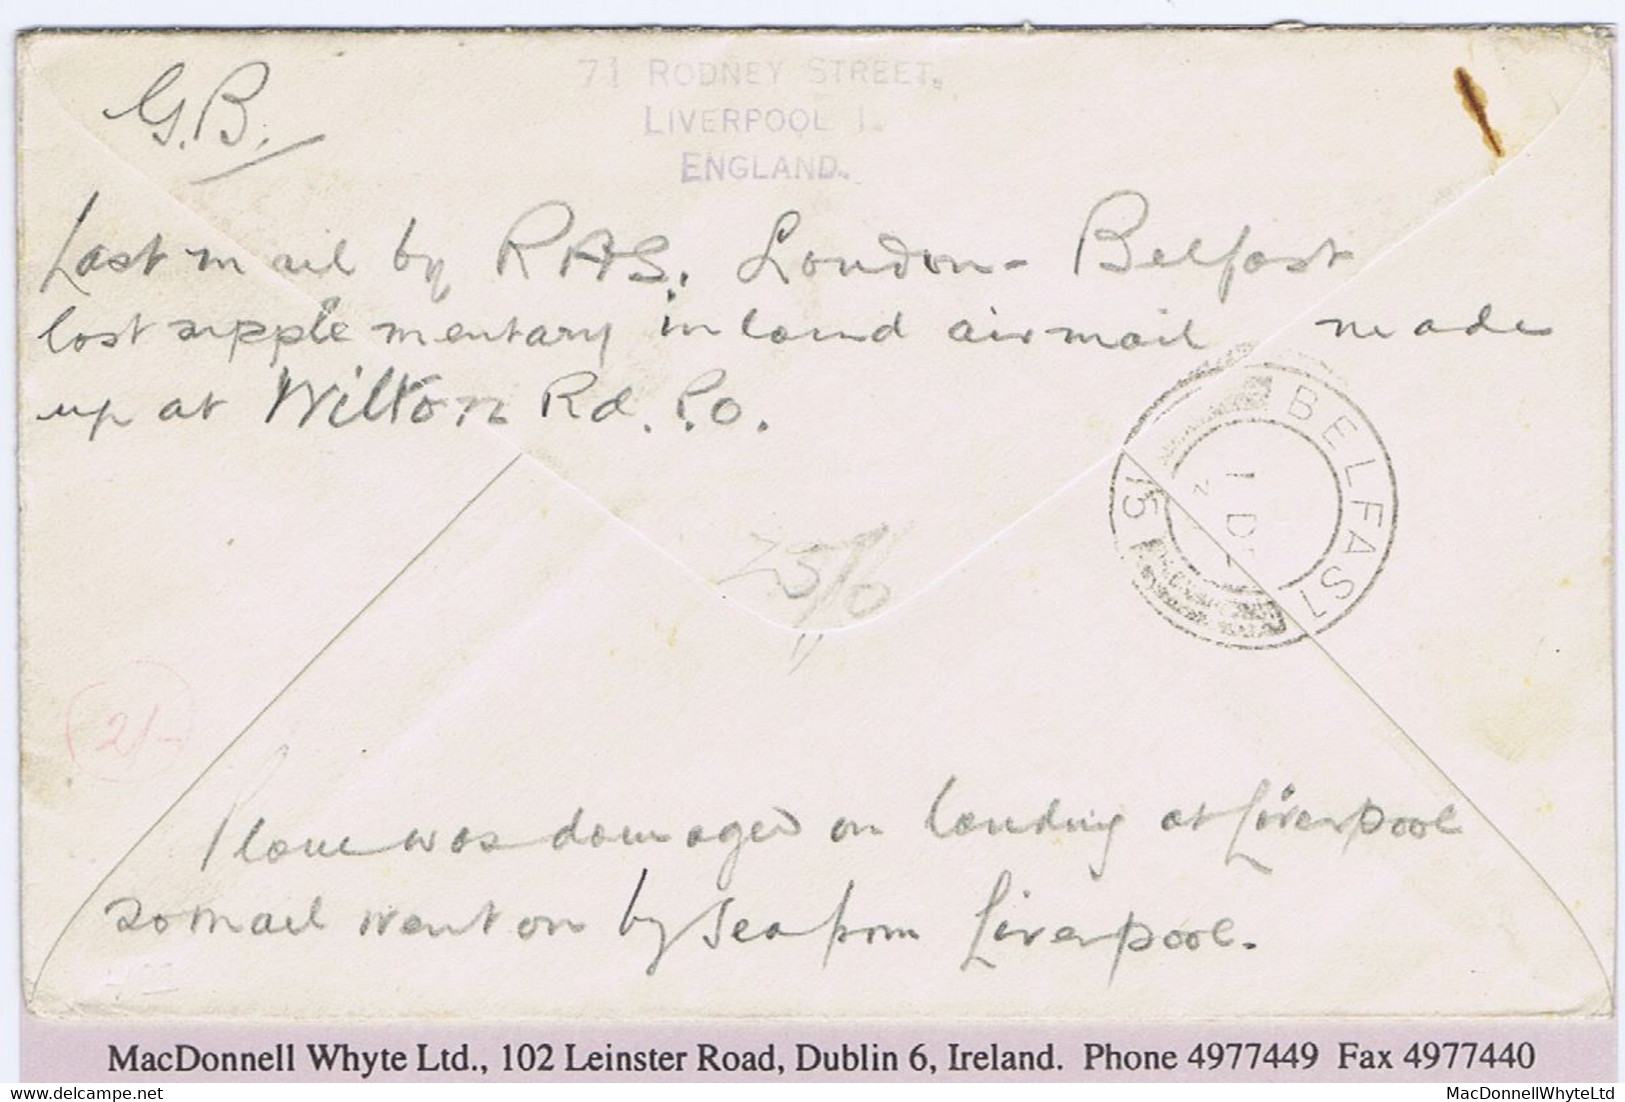 G.B.
71 RODNEY STREET.
LIVERPOOL 1.
ENGLAND.
Last mail by RAS. London - Belfast
last supplementary inland airmail made
up at Wilton Rd. P.O.
BELFAST
15
1 D
25/0
2/-
Plane was damaged on landing at Liverpool
so mail went on by sea from Liverpool.
MacDonnell Whyte Ltd., 102 Leinster Road, Dublin 6, Ireland. Phone 4977449 Fax 4977440
MacDonnellWhyteLtd